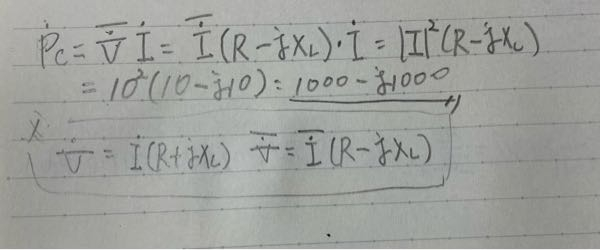 Ṗc = V̇̅ İ = İ̅ (R - jXL)・İ = |I|²(R - jXL)
= 10²(10 - j10) = 1000 - j1000
※
V̇ = İ(R + jXL) V̇̅ = İ̅(R - jXL)